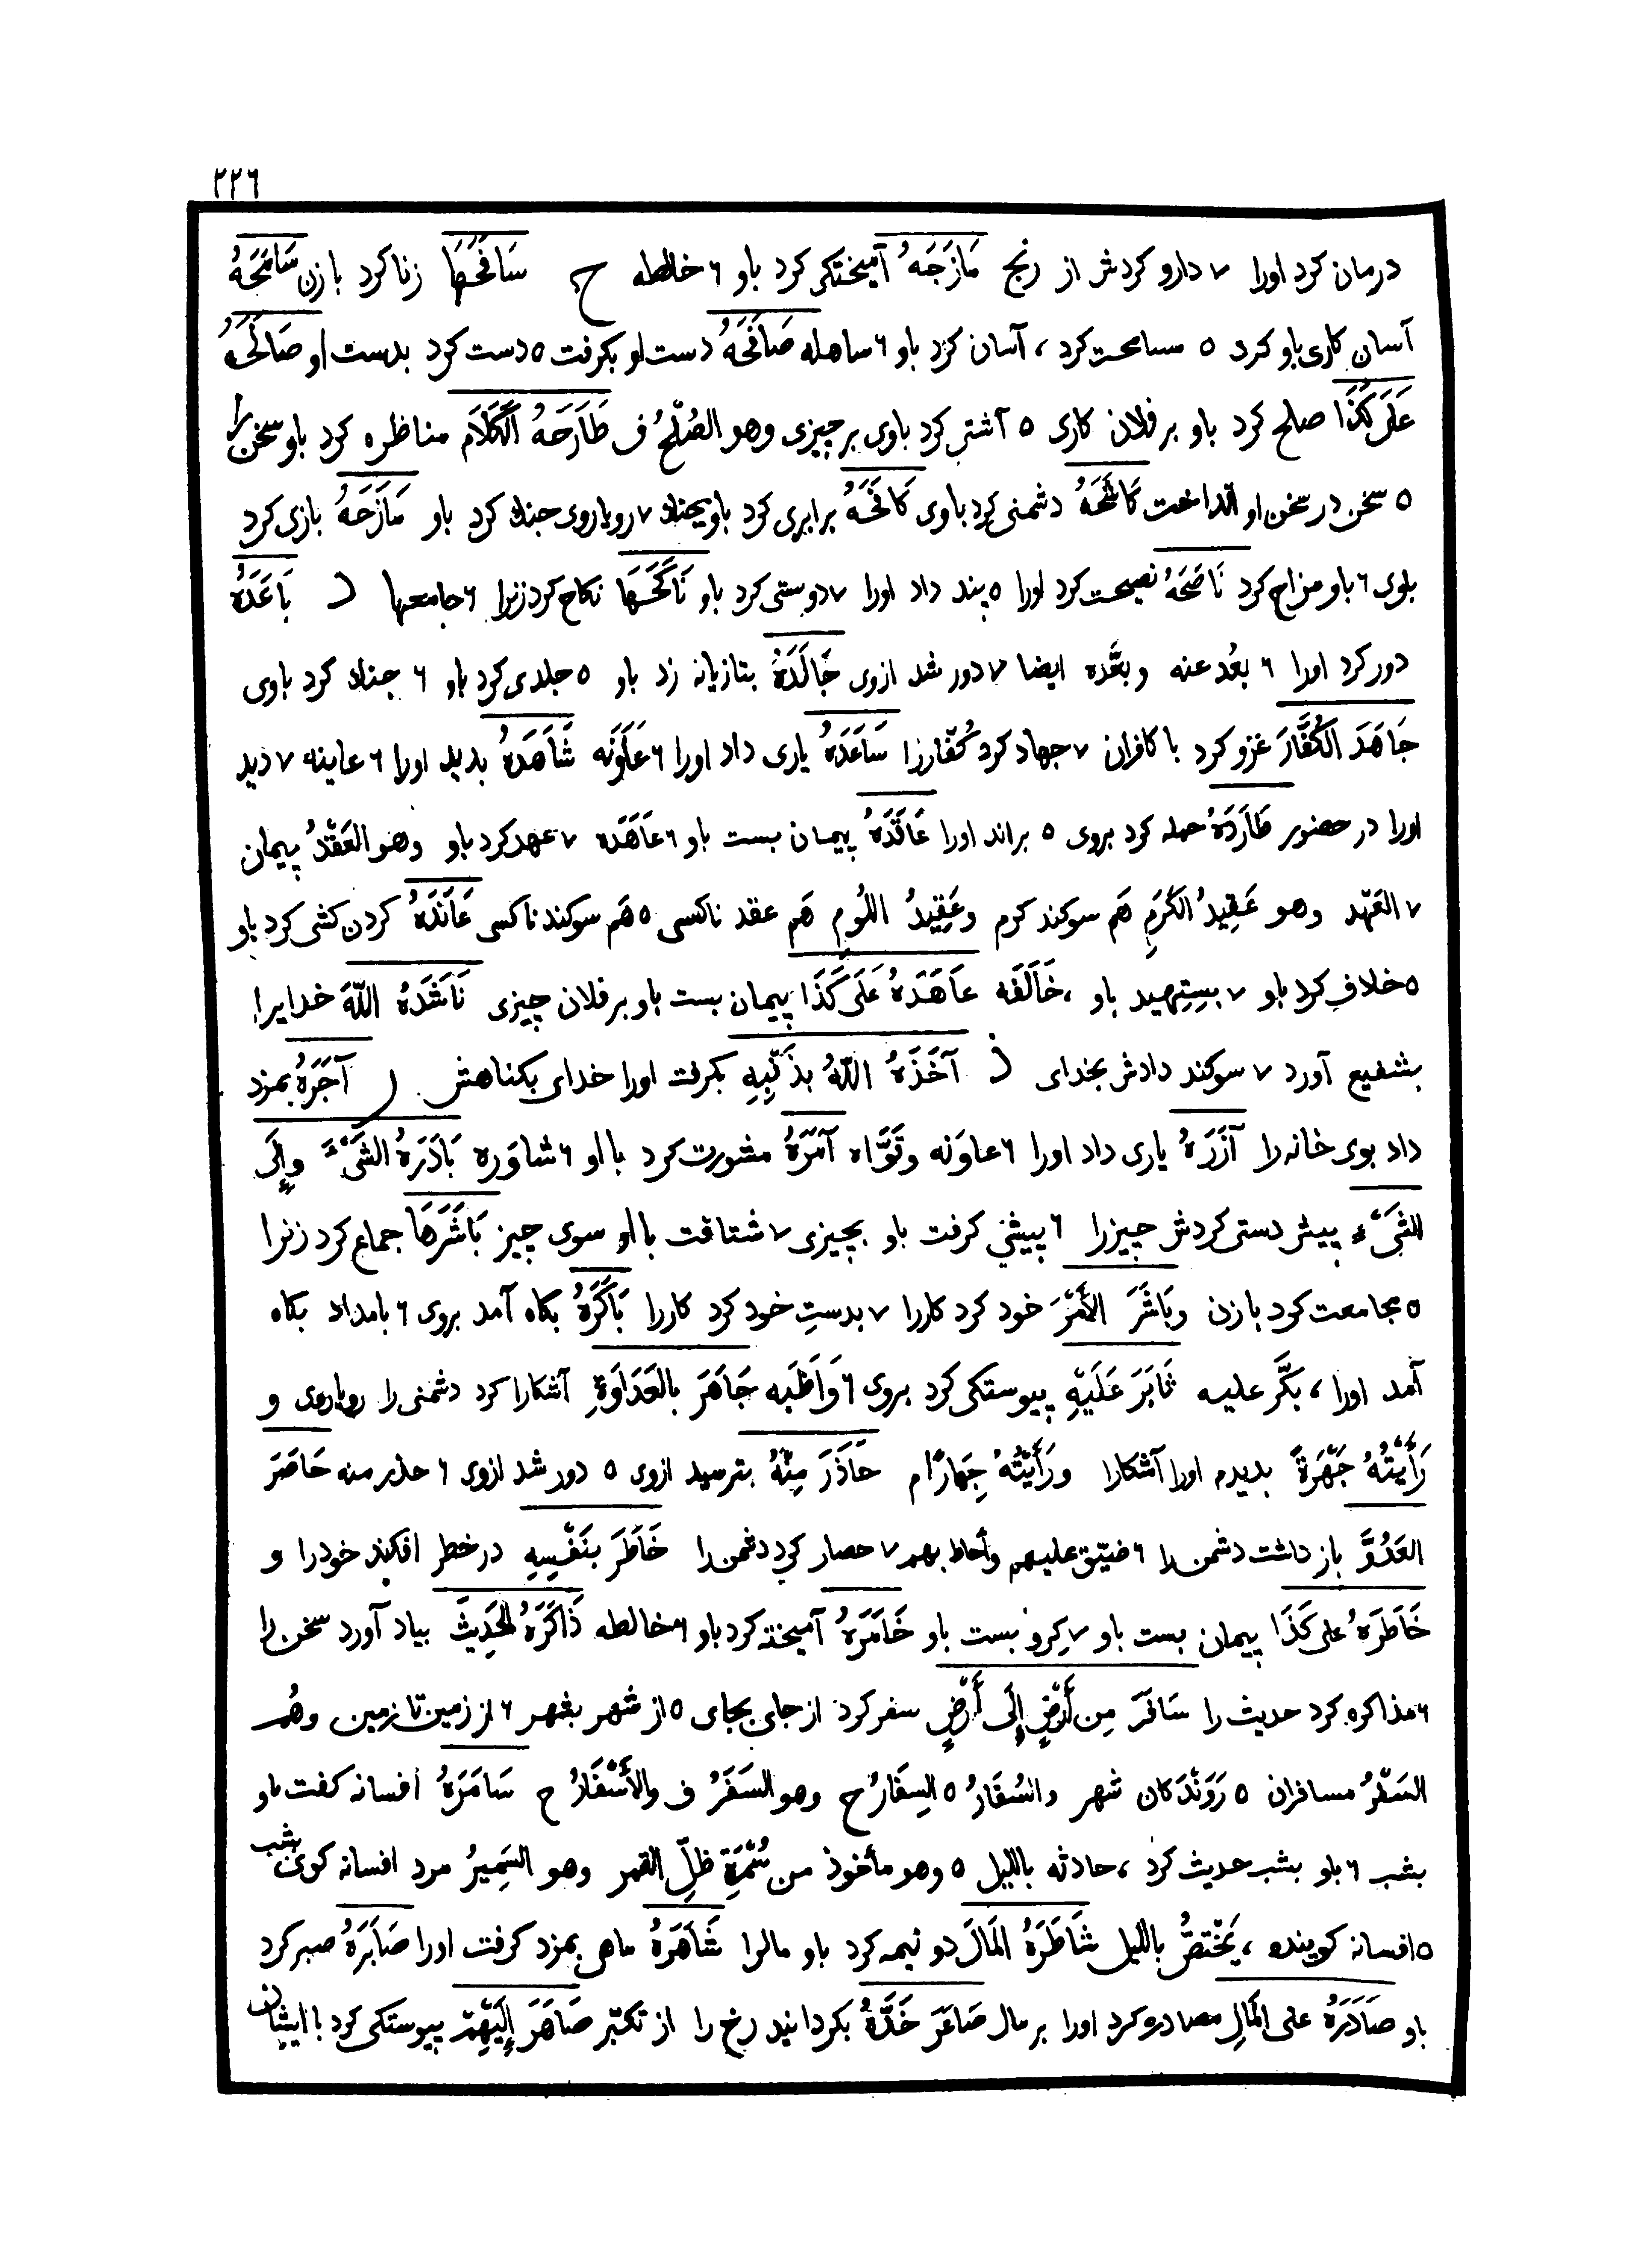 ٢٢٦
درمان کرد اورا ٧ دارو کردش از رنج مَازَجَهُ آمیختکی کرد باو ٦ خالطه ح سَافَحَهَا زنا کرد با زن سَامَحَهُ
آسان کاری باو کرد ٥ مسامحت کرد ، آسان کرد باو ٦ ساهله صَافَحَهُ دست او بکرفت ٥ دست کرد بدست او صَالَحَهُ
عَلَى كَذَا صلح کرد باو بر فلان کاری ٥ آشتی کرد باوی بر چیزی وهو الصُلْحُ ف طَارَحَهُ الْكَلَامَ مناظره کرد باو سخن را
٥ سخن در سخن او انداخت كَاشَحَهُ دشمنی کرد باوی كَافَحَهُ برابری کرد باو بجنك ٧ رویاروی جنك کرد باو مَازَحَهُ بازی کرد
بلوی ٦ باو مزاح کرد نَاصَحَهُ نصیحت کرد اورا ٥ پند داد اورا ٧ دوستی کرد باو نَاكَحَهَا نکاح کرد زنرا ٦ جامعها د بَاعَدَهُ
دور کرد اورا ٦ بعُد عنه وبعَّده ایضا ٧ دور شد ازوی جَالَدَهُ بتازیانه زد باو ٥ جلدی کرد باو ٦ جنك کرد باوی
جَاهَدَ الكُفَّارَ غزو کرد با کافران ٧ جهاد کرد کُفّار را سَاعَدَهُ یاری داد اورا ٦ عَاوَنَه شَاهَدَهُ بدید اورا ٦ عاینه ٧ دید
اورا در حضور طَارَدَهُ حمله کرد بروی ٥ براند اورا عَاقَدَهُ پیمان بست باو ٦ عَاهَدَه ٧ عهد کرد باو وهو العَقْدُ پیمان
٧ العَهْد وهو عَقِيدُ الكَرَمِ هَم سوکند کرم وعَقِيدُ اللُومِ هَم عقد ناکسی ٥ هَم سوکند ناکسی عَانَدَهُ کردن کشی کرد باو
٥ خلاف کرد باو ٧ بستهید باو ، خَالَفَه عَاهَدَهُ عَلَى كَذَا پیمان بست باو بر فلان چیزی نَاشَدَهُ اللّهَ خدایرا
بشفیع آورد ٧ سوکند دادش بخدای ذ آخَذَهُ اللّهُ بذَنْبِهِ بکرفت اورا خدای بکناهش ر آجَرَهُ بمزد
داد بوی خانه را آزَرَهُ یاری داد اورا ٦ عاوَنه وقَوَّاه آمَرَهُ مشورت کرد با او ٦ شاوَره بَادَرَهُ الشَىْءَ وإِلَى
الشَىْءِ پیش دستی کردش چیزرا ٦ پیشی کرفت باو بچیزی ٧ شتافت با او سوی چیز بَاشَرَهَا جماع کرد زنرا
٥ مجامعت کرد با زن وبَاشَرَ الأَمْرَ خود کرد کاررا ٧ بدستِ خود کرد کاررا بَاكَرَهُ بکاه آمد بروی ٦ بامداد بکاه
آمد اورا ، بَكَّر علیه ثَابَرَ عَلَيْهِ پیوستکی کرد بروی ٦ وَاظَبَه جَاهَرَ بالعَدَاوَةِ آشکارا کرد دشمنی را رویاروی و
رَأَيْتُهُ جَهْرَةً بدیدم اورا آشکارا ورَأَيْتُهُ جِهَارًا م حَاذَرَ مِنْهُ بترسید ازوی ٥ دور شد ازوی ٦ حذر منه حَاصَرَ
العَدُوَّ باز داشت دشمن را ٦ ضیّق علیهم وأحاط بهم ٧ حصار کرد دشمن را خَاطَرَ بنَفْسِهِ در خطر افکند خودرا و
خَاطَرَهُ على كَذَا پیمان بست باو ٧ کِرو بست باو خَامَرَهُ آمیخته کرد باو ٦ خالطه ذَاكَرَهُ الحَدِيثَ بیاد آورد سخن را
٦ مذاکره کرد حدیث را سَافَرَ مِن أَرْضٍ إِلَى أَرْضٍ سفر کرد از جای بجای ٥ از شهر بشهر ٦ از زمین تا زمین وهُم
السَفْرُ مسافران ٥ رَوَنْدَکان شهر والسُفَارُ ٥ السِفَارُ ح وهو السَفَرُ ف والأَسْفَارُ ح سَامَرَهُ افسانه کفت باو
بشب ٦ باو بشب حدیث کرد ، حادثه باللیل ٥ وهو مأخوذ من سُمْرَةِ ظِلّ القمر وهو السَمِيرُ مرد افسانه کوی بشب
٥ افسانه کوینده ، يَخْتَصُّ باللیل شَاطَرَهُ المَالَ دو نیمه کرد باو مالرا شَاهَرَهُ ماهی بمزد کرفت اورا صَابَرَهُ صبر کرد
باو صَادَرَهُ على المَالِ مصادره کرد اورا بر مال صَاعَرَ خَدَّهُ بکردانید رخ را از تکبّر صَاهَرَ إِلَيْهِمْ پیوستکی کرد با ایشان